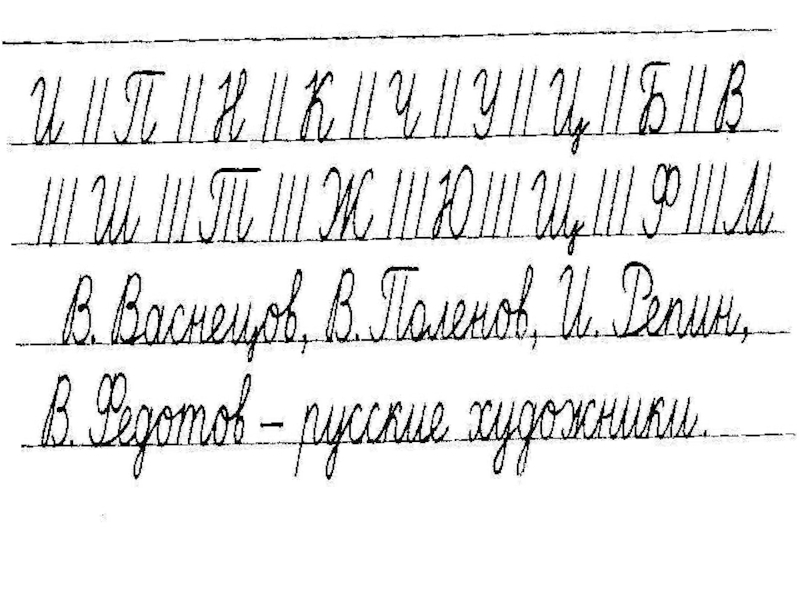 И || П || Н || К || Ч || У || Ц || Б || В
||| Ш ||| Т ||| Ж ||| Ю ||| Щ ||| Ф ||| М
В. Васнецов, В. Поленов, И. Репин,
В. Федотов – русские художники.